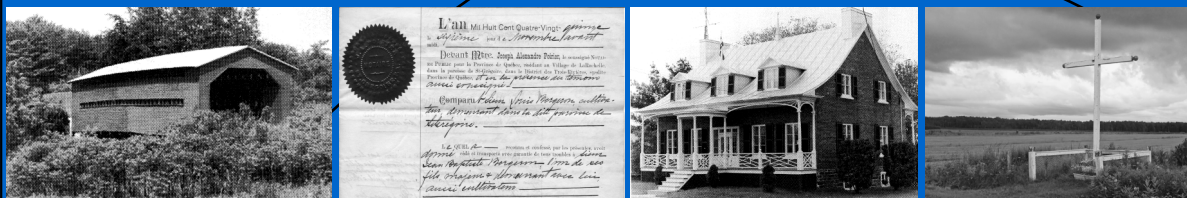 L'an Mil Huit Cent Quatre-Vingt- quinze
le septième jour de Novembre avant
midi.
Devant Mtre. Joseph Alexandre Poirier, le soussigné Notai-
re Public pour la Province de Québec, résidant au Village de
dans la paroisse de St-Grégoire, dans le District des Trois-Rivières, susdite
Province de Québec, et en la présence du témoin
aussi soussigné
Comparu Sieur Louis Bergeron cultiva-
teur, demeurant dans la dite paroisse de
St Grégoire.
LEQUEL a reconnu et confessé, par les présentes, avoir
donné cédé et transporté avec garantie de tous troubles à Sieur
Jean Baptiste Bergeron l'un de ses
fils majeurs demeurant avec lui
aussi cultivateur